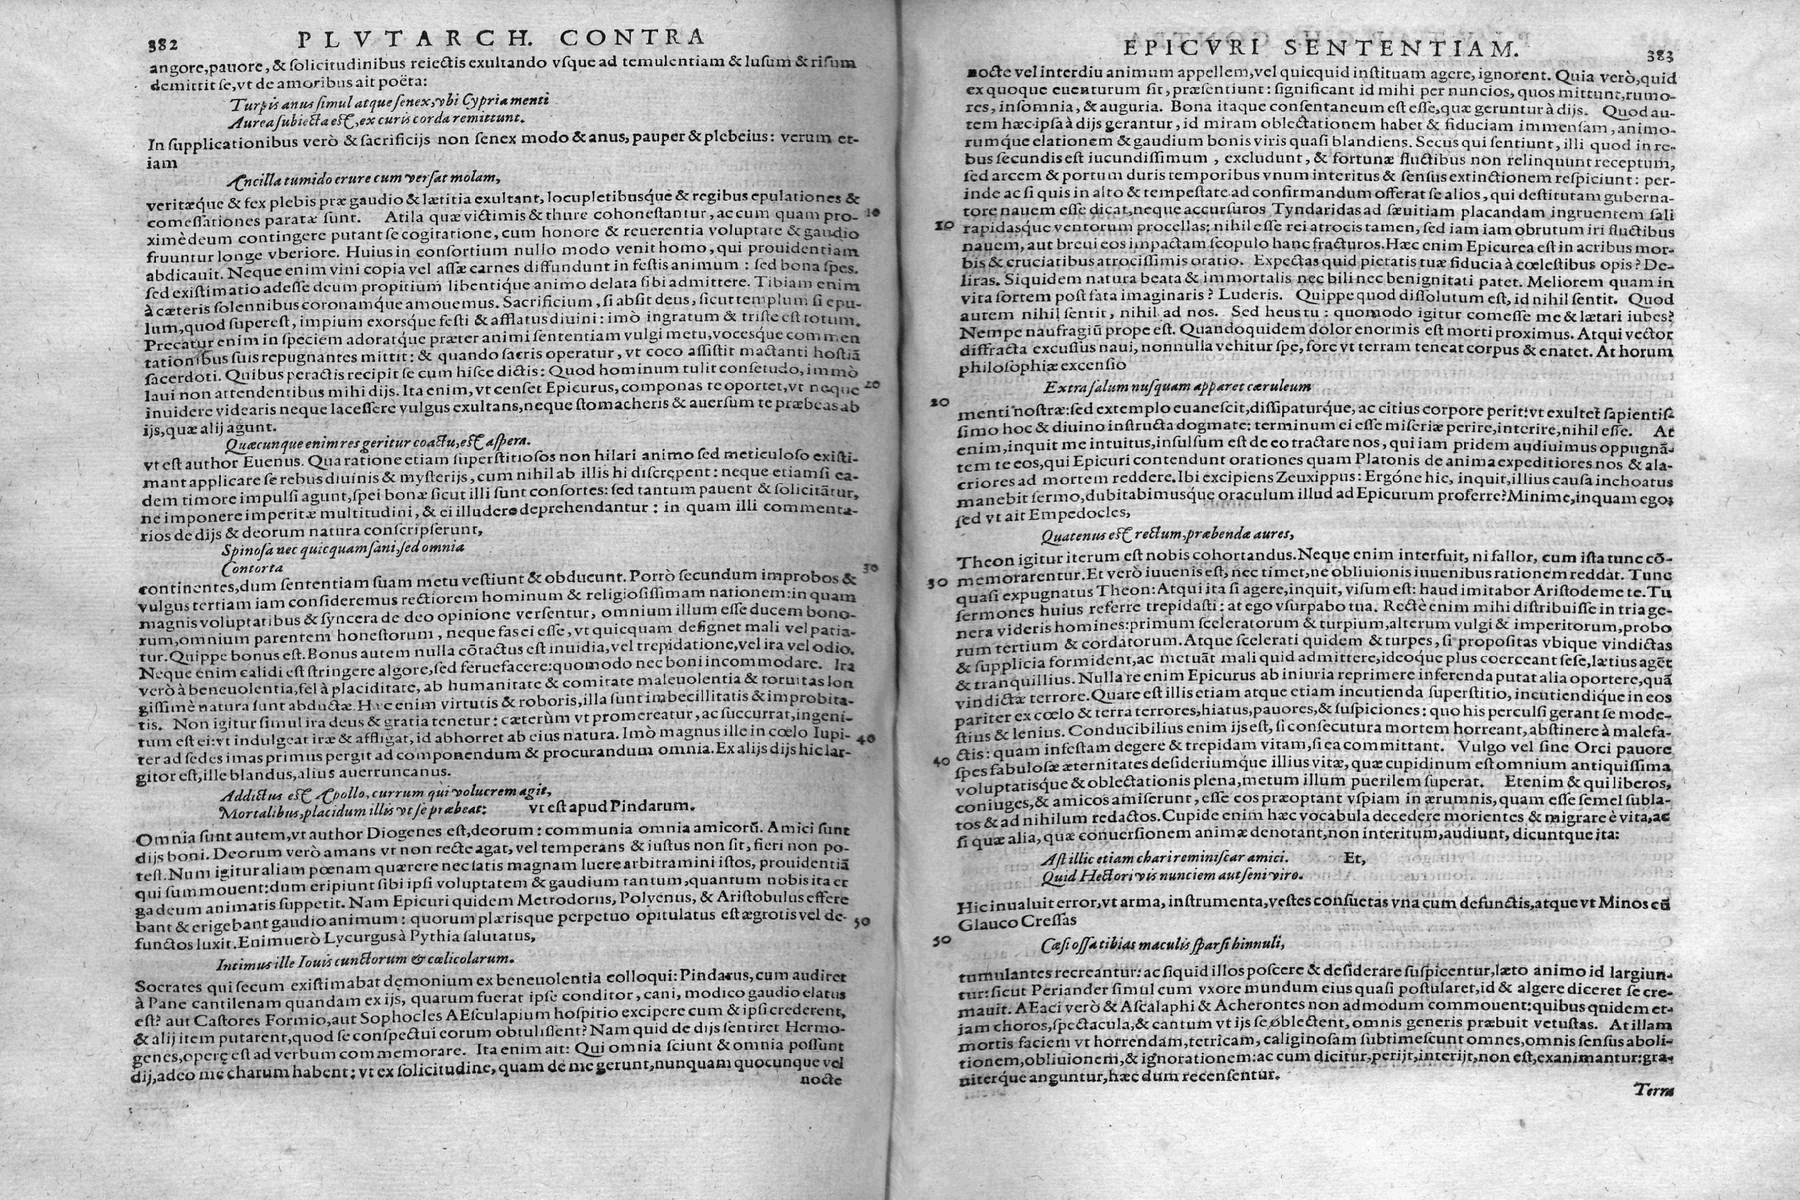 382 PLVTARCH. CONTRA
angore,pauore, & solicitudinibus reiectis exultando vsque ad temulentiam & lusum & risum
demittit se,vt de amoribus ait poëta:
Turpis anus simul atque senex,vbi Cypria menti
Aurea subiecta est, ex curis corda remittunt.
In supplicationibus verò & sacrificijs non senex modo & anus, pauper & plebeius: verum et-
iam
Ancilla tumido crure cum versat molam,
veritæque & fex plebis præ gaudio & lætitia exultant, locupletibusque & regibus epulationes &
comessationes paratæ sunt. At illa quæ victimis & thure cohonestantur, ac cum quam pro- 10
ximè deum contingere putant se cogitatione, cum honore & reuerentia voluptate & gaudio
fruuntur longe vberiore. Huius in consortium nullo modo venit homo, qui prouidentiam
abdicauit. Neque enim vini copia vel assæ carnes diffundunt in festis animum : sed bona spes.
sed existimatio adesse deum propitium libentique animo delata sibi admittere. Tibiam enim
à cæteris solennibus coronamque amouemus. Sacrificium, si absit deus, sicut templum si epu-
lum, quod superest, impium exorsque festi & afflatus diuini : imò ingratum & triste est totum.
Precatur enim in speciem adoratque præter animi sententiam vulgi metu, vocesque commen
tationibus suis repugnantes mittit: & quando sacris operatur, vt coco assistit mactanti hostiā
sacerdoti. Quibus peractis recipit se cum hisce dictis: Quod hominum tulit consetudo, immò
laui non attendentibus mihi dijs. Ita enim, vt censet Epicurus, componas te oportet, vt neque 20
inuidere videaris neque lacessere vulgus exultans, neque stomacheris & auersum te præbeas ab
ijs, quæ alij agunt.
Quæcunque enim res geritur coactu, est aspera.
vt est author Euenus. Qua ratione etiam superstitiosos non hilari animo sed meticuloso existi-
mant applicare se rebus diuinis & mysterijs, cum nihil ab illis hi discrepent: neque etiamsi ea-
dem timore impulsi agunt, spei bonæ sicut illi sunt consortes: sed tantum pauent & solicitātur,
ne imponere imperitæ multitudini, & ei illudere deprehendantur : in quam illi commenta-
rios de dijs & deorum natura conscripserunt,
Spinosa nec quicquam sani, sed omnia
Contorta 30
continentes, dum sententiam suam metu vestiunt & obducunt. Porrò secundum improbos &
vulgus tertiam iam consideremus rectiorem hominum & religiosissimam nationem: in quam
magnis voluptatibus & syncera de deo opinione versentur, omnium illum esse ducem bono-
rum, omnium parentem honestorum, neque fas ei esse, vt quicquam designet mali vel patia-
tur. Quippe bonus est. Bonus autem nulla cōtactus est inuidia, vel trepidatione, vel ira vel odio.
Neque enim calidi est stringere algore, sed feruefacere: quomodo nec boni incommodare. Ira
verò à beneuolentia, fel à placiditate, ab humanitate & comitate maleuolentia & toruitas lon
gissimè natura sunt abductæ. Hæc enim virtutis & roboris, illa sunt imbecillitatis & improbita-
tis. Non igitur simul ira deus & gratia tenetur : cæterùm vt promereatur, ac succurrat, ingeni-
tum est ei: vt indulgeat iræ & affligat, id abhorret ab eius natura. Imò magnus ille in cœlo Iupi- 40
ter ad sedes imas primus pergit ad componendum & procurandum omnia. Ex alijs dijs hic lar-
gitor est, ille blandus, alius auerruncanus.
Addictus est Apollo, currum qui volucrem agit,
Mortalibus, placidum illis vt se præbeat: vt est apud Pindarum.
Omnia sunt autem, vt author Diogenes est, deorum : communia omnia amicorū. Amici sunt
dijs boni. Deorum verò amans vt non recte agat, vel temperans & iustus non sit, fieri non po-
test. Num igitur aliam pœnam quærere nec satis magnam luere arbitramini istos, prouidentiā
qui summouent: dum eripiunt sibi ipsi voluptatem & gaudium tantum, quantum nobis ita er
ga deum animatis suppetit. Nam Epicuri quidem Metrodorus, Polyenus, & Aristobulus effere
bant & erigebant gaudio animum : quorum plærisque perpetuo opitulatus est ægrotis vel de- 50
functos luxit. Enimuerò Lycurgus à Pythia salutatus,
Intimus ille Iouis cunctorum & cœlicolarum.
Socrates qui secum existimabat demonium ex beneuolentia colloqui: Pindarus, cum audiret
à Pane cantilenam quandam ex ijs, quarum fuerat ipse conditor, cani, modico gaudio elatus
est? aut Castores Formio, aut Sophocles AEsculapium hospitio excipere cum & ipsi crederent,
& alij item putarent, quod se conspectui eorum obtulissent? Nam quid de dijs sentiret Hermo-
genes, operę est ad verbum commemorare. Ita enim ait: Qui omnia sciunt & omnia possunt
dij, adeo me charum habent: vt ex solicitudine, quam de me gerunt, nunquam quocunque vel
nocte
EPICVRI SENTENTIAM. 383
nocte vel interdiu animum appellem, vel quicquid instituam agere, ignorent. Quia verò, quid
ex quoque euenturum sit, præsentiunt: significant id mihi per nuncios, quos mittunt, rumo-
res, insomnia, & auguria. Bona itaque consentaneum est esse, quæ geruntur à dijs. Quod au-
tem hæc ipsa à dijs gerantur, id miram oblectationem habet & fiduciam immensam, animo-
rumque elationem & gaudium bonis viris quasi blandiens. Secus qui sentiunt, illi quod in re-
bus secundis est iucundissimum, excludunt, & fortunæ fluctibus non relinquunt receptum,
sed arcem & portum duris temporibus vnum interitus & sensus extinctionem respiciunt: per-
inde ac si quis in alto & tempestate ad confirmandum offerat se alios, qui destitutam guberna-
tore nauem esse dicat, neque accursuros Tyndaridas ad sæuitiam placandam ingruentem sali
10 rapidasque ventorum procellas: nihil esse rei atrocis tamen, sed iam iam obrutum iri fluctibus
nauem, aut breui eos impactam scopulo hanc fracturos. Hæc enim Epicurea est in acribus mor-
bis & cruciatibus atrocissimis oratio. Expectas quid pietatis tuæ fiducia à cœlestibus opis? De-
liras. Siquidem natura beata & immortalis nec bili nec benignitati patet. Meliorem quam in
vita sortem post fata imaginaris? Luderis. Quippe quod dissolutum est, id nihil sentit. Quod
autem nihil sentit, nihil ad nos. Sed heus tu : quomodo igitur comesse me & lætari iubes?
Nempe naufragiū prope est. Quandoquidem dolor enormis est morti proximus. Atqui vector
diffracta excussus naui, nonnulla vehitur spe, fore vt terram teneat corpus & enatet. At horum
philosophiæ excensio
Extra salum nusquam apparet cæruleum
20 menti nostræ: sed extemplo euanescit, dissipaturque, ac citius corpore perit: vt exultet sapientis-
simo hoc & diuino instructa dogmate: terminum ei esse miseriæ perire, interire, nihil esse. At
enim, inquit me intuitus, insulsum est de eo tractare nos, qui iam pridem audiuimus oppugnā-
tem te eos, qui Epicuri contendunt orationes quam Platonis de anima expeditiores nos & ala-
criores ad mortem reddere. Ibi excipiens Zeuxippus: Ergóne hic, inquit, illius causa inchoatus
manebit sermo, dubitabimusque oraculum illud ad Epicurum proferre? Minime, inquam ego:
sed vt ait Empedocles,
Quatenus est rectum, præbendæ aures,
Theon igitur iterum est nobis cohortandus. Neque enim interfuit, ni fallor, cum ista tunc cō-
30 memorarentur. Et verò iuuenis est, nec timet, ne obliuionis iuuenibus rationem reddat. Tunc
quasi expugnatus Theon: Atqui ita si agere, inquit, visum est: haud imitabor Aristodeme te. Tu
sermones huius referre trepidasti: at ego vsurpabo tua. Recte enim mihi distribuisse in tria ge-
nera videris homines: primum sceleratorum & turpium, alterum vulgi & imperitorum, probo
rum tertium & cordatorum. Atque scelerati quidem & turpes, si propositas vbique vindictas
& supplicia formident, ac metuāt mali quid admittere, ideoque plus coerceant sese, lætius agēt
& tranquillius. Nulla re enim Epicurus ab iniuria reprimere inferenda putat alia oportere, quā
vindictæ terrore. Quare est illis etiam atque etiam incutienda superstitio, incutiendique in eos
pariter ex cœlo & terra terrores, hiatus, pauores, & suspiciones: quo his perculsi gerant se mode-
stius & lenius. Conducibilius enim ijs est, si consecutura mortem horreant, abstinere à malefa-
ctis: quam infestam degere & trepidam vitam, si ea committant. Vulgo vel sine Orci pauore
40 spes fabulosæ æternitates desideriumque illius vitæ, quæ cupidinum est omnium antiquissima
voluptatisque & oblectationis plena, metum illum puerilem superat. Etenim & qui liberos,
coniuges, & amicos amiserunt, esse eos præoptant vspiam in ærumnis, quam esse semel subla-
tos & ad nihilum redactos. Cupide enim hæc vocabula decedere morientes & migrare è vita, ac
si quæ alia, quæ conuersionem animæ denotant, non interitum, audiunt, dicuntque ita:
Ast illic etiam chari reminiscar amici. Et,
Quid Hectori vis nunciem aut seni viro.
Hic inualuit error, vt arma, instrumenta, vestes consuetas vna cum defunctis, atque vt Minos cū
Glauco Cressas
50 Cæsi ossa tibias maculis sparsi hinnuli,
tumulantes recreantur: ac siquid illos poscere & desiderare suspicentur, læto animo id largiun-
tur: sicut Periander simul cum vxore mundum eius quasi postularet, id & algere diceret se cre-
mauit. AEaci verò & Ascalaphi & Acherontes non admodum commouent: quibus quidem et-
iam choros, spectacula, & cantum vt ijs se oblectent, omnis generis præbuit vetustas. At illam
mortis faciem vt horrendam, tetricam, caliginosam subtimescunt omnes, omnis sensus aboli-
tionem, obliuionem, & ignorationem: ac cum dicitur, perijt, interijt, non est, exanimantur: gra-
uiterque anguntur, hæc dum recensentur.
Terra